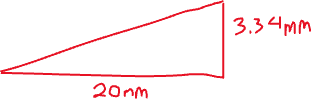 3.34mm
20nm